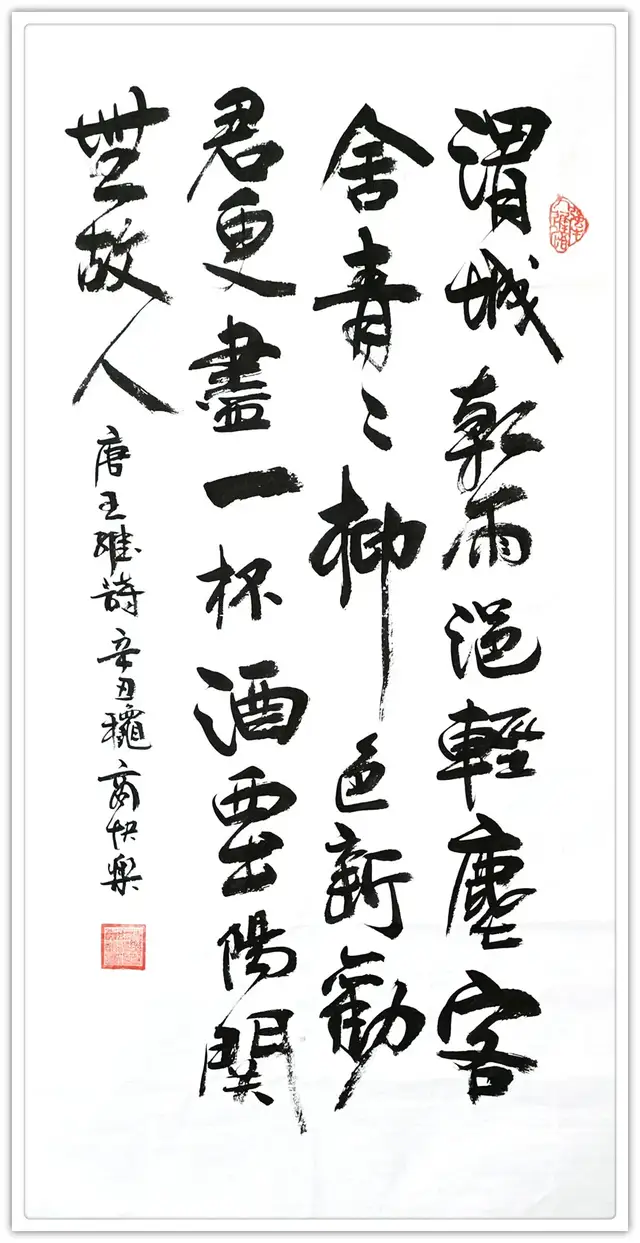 渭城朝雨浥輕塵客
舍青〻柳色新勸
君更盡一杯酒西出陽關
無故人
唐王維詩辛丑龝商快樂